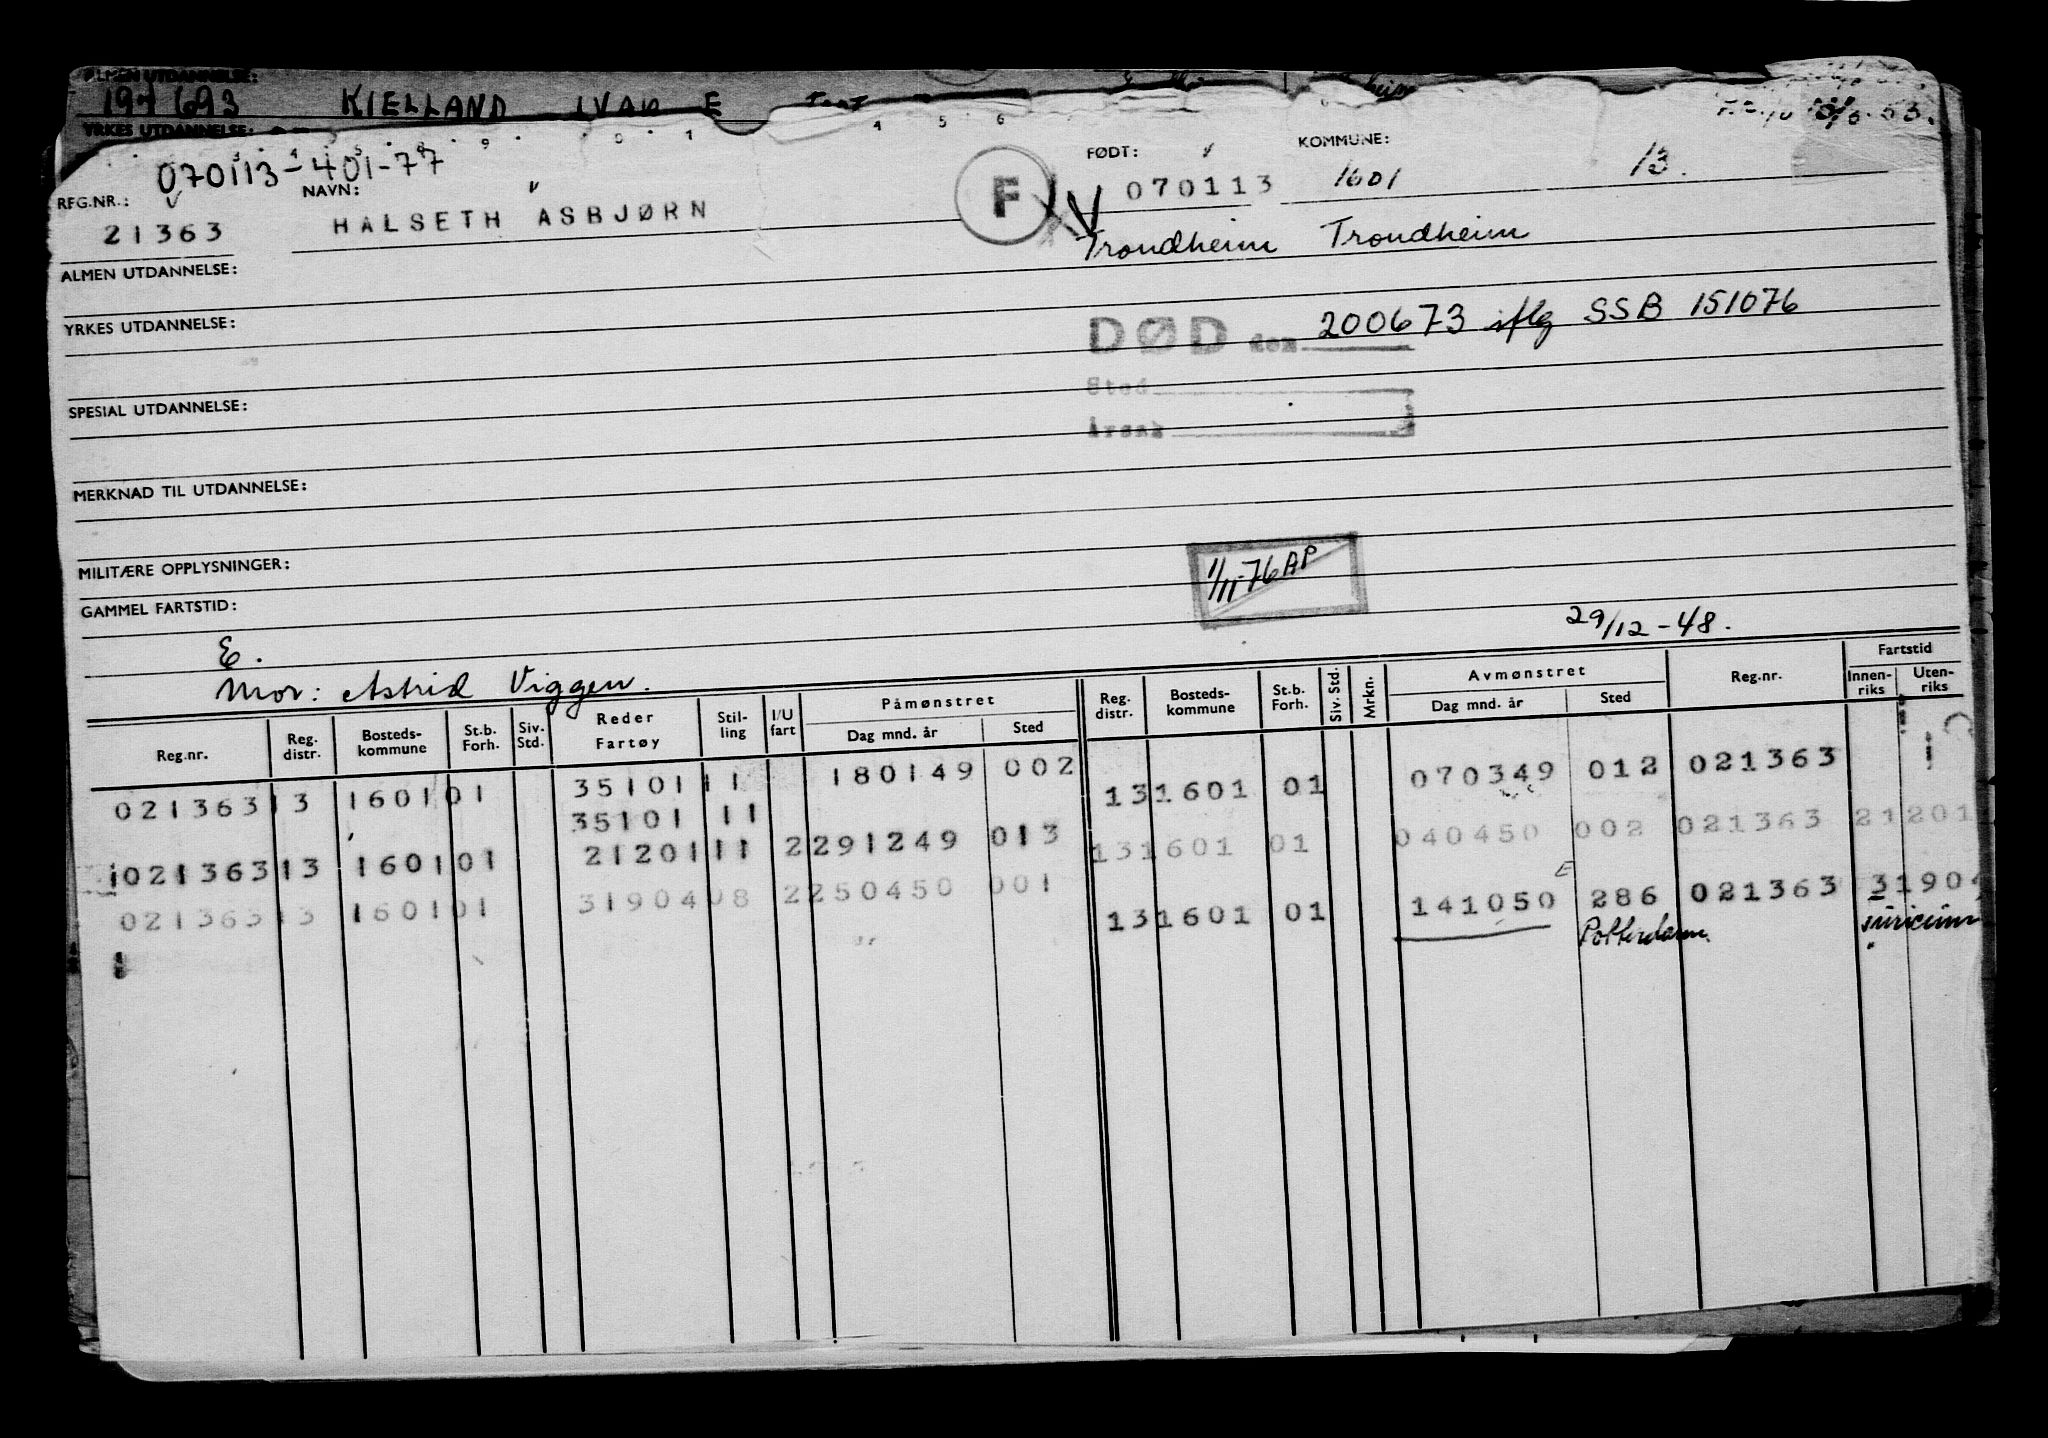 ALMEN UTDANNELSE:
KIELLAND IVAR E
YRKES UTDANNELSE:
070113-401-77
FØDT: KOMMUNE:
REG.NR.: NAVN: F 070113 1601 13.
21363 HALSETH ASBJØRN
Trondheim Trondheim
ALMEN UTDANNELSE:
YRKES UTDANNELSE:
DØD den 200673 iflg SSB 151076
Sted
Årsak
SPESIAL UTDANNELSE:
MERKNAD TIL UTDANNELSE:
MILITÆRE OPPLYSNINGER:
1/11-76 AP
GAMMEL FARTSTID:
E.
29/12-48.
Mor: Astrid Viggen.
Reg.nr. Reg. distr. Bosteds-kommune St.b. Forh. Siv. Std. Reder Fartøy Stil-ling I/U fart Påmønstret Dag mnd. år Sted Reg. distr. Bosteds-kommune St.b. Forh. Siv. Std. Mrkn. Avmønstret Dag mnd. år Sted Reg.nr. Fartstid Innen-riks Uten-riks
021363 13 1601 01 35101 11 180149 002 13 1601 01 070349 012 021363
35101 11
021363 13 1601 01 21201 11 2 291249 013 13 1601 01 040450 002 021363 21201
021363 13 1601 01 31904 08 2 250450 001 13 1601 01 141050 E 286 021363 31904